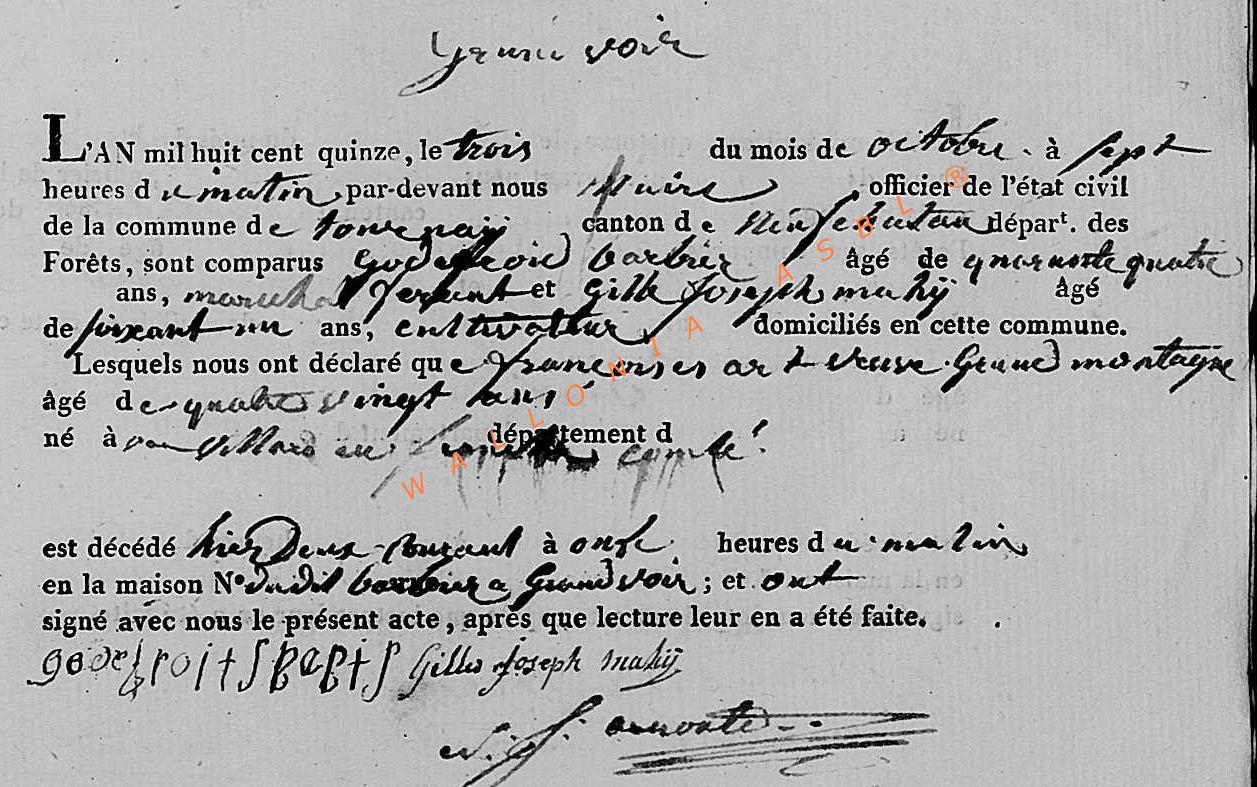 Grand voir
L'AN mil huit cent quinze, le trois du mois de octobre. à sept
heures du matin par-devant nous Maire officier de l'état civil
de la commune de tournaÿ canton de Neufchatau départ. des
Forêts, sont comparus Godefroid barbier âgé de quarante quatre
ans, marechal ferrant et Gille Joseph mahÿ âgé
de soixant un ans, cultivateur domiciliés en cette commune.
Lesquels nous ont déclaré que veuve Grand montagne
âgé de quatre vingt ans
né à en département d comté
est décédé hier Deux courant à onse heures du matin
en la maison N° dudit barbier a Grandvoir; et ont
signé avec nous le présent acte, après que lecture leur en a été faite.
Gilles Joseph mahÿ
WALLONIA ASBL ®